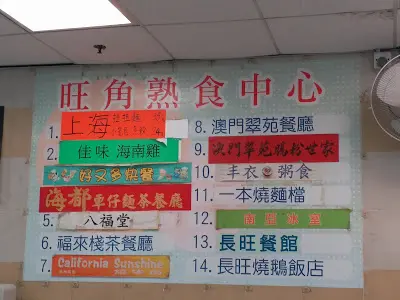 旺角熟食中心
1. 上海
2. 佳味 海南雞
好又多快餐
海都車仔麵茶餐廳
5. 八福堂
6. 福來棧茶餐廳
7. California Sunshine
8. 澳門翠苑餐廳
9. 澳門翠苑
10. 丰衣 粥食
11. 一本燒麵檔
12.
13. 長旺餐館
14. 長旺燒鵝飯店